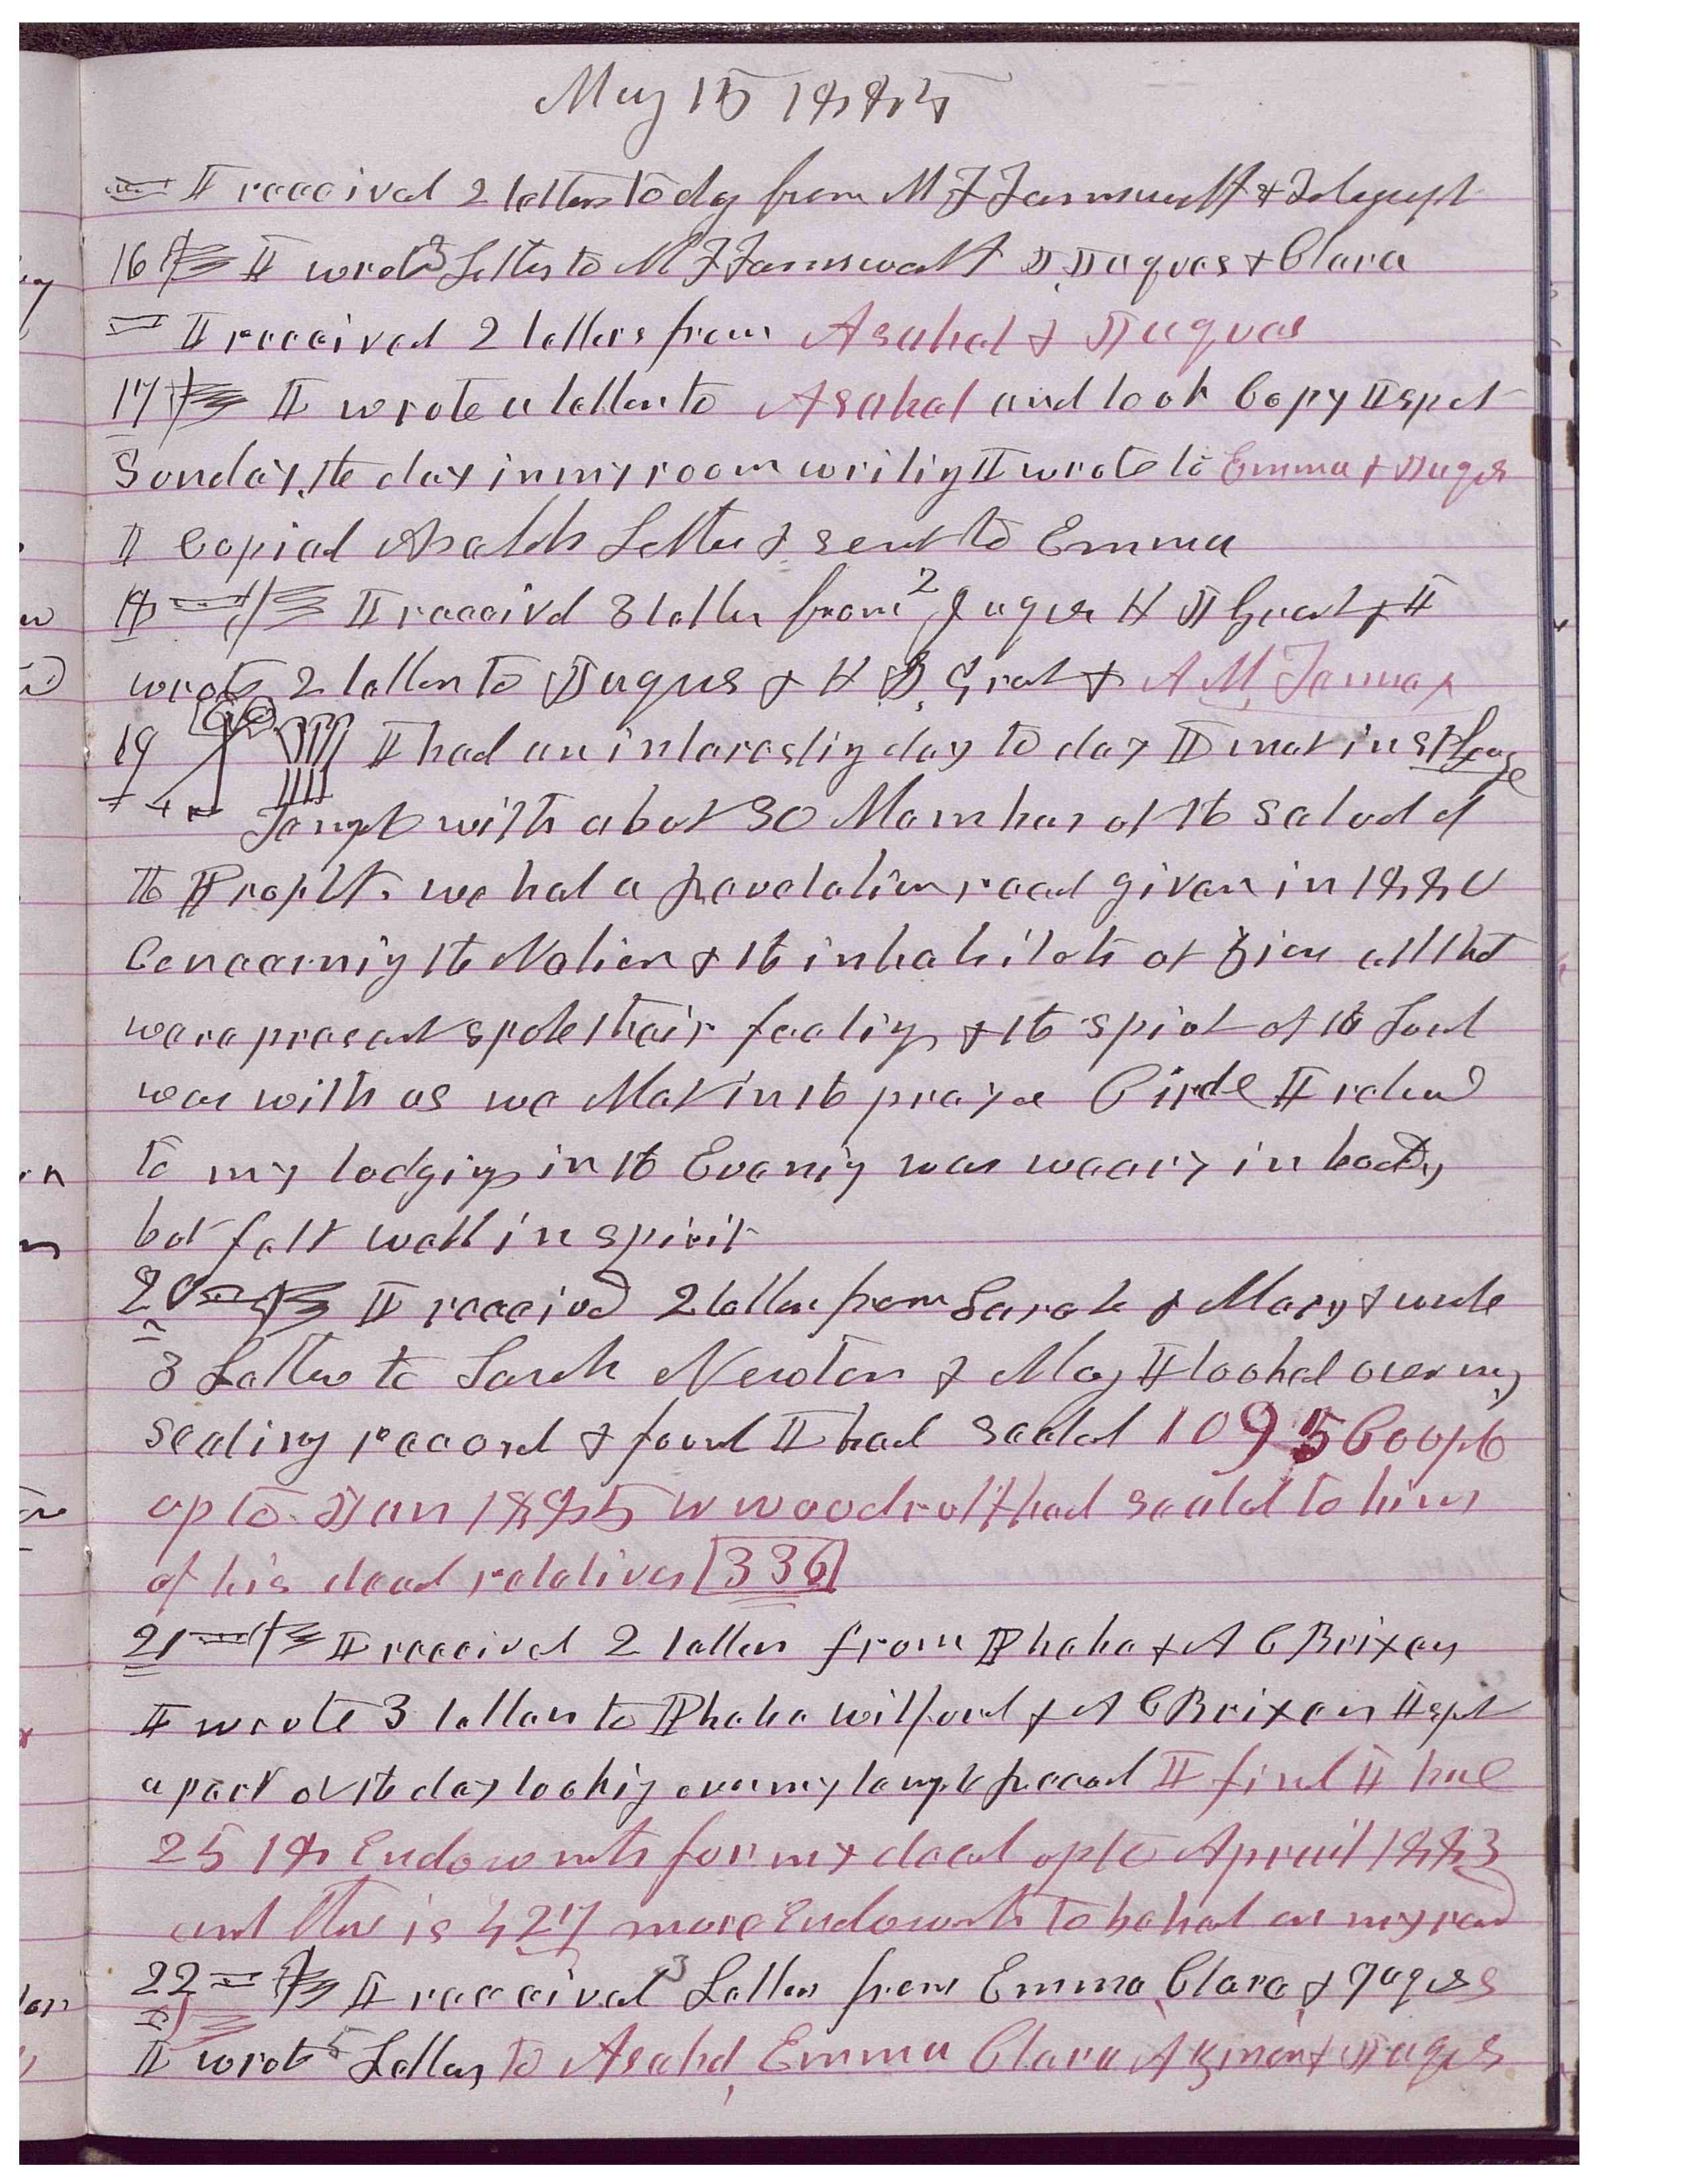 May 15 1885
I received 2 letters to day from M F Farnsworth &
16 I wrote 3 Letters to M F Farnsworth Jaques & Clara
I received 2 letters from Asahel & Jaques
17 I wrote a letter to Asahel and took Copy I spet
Sunday the day in my room writig I wrote to Emma & Jaqus
I Copied Asahels Letter & sent to Emma
18 I receivd 3 letter from 2 Jaques H J Grant & I
wrote 2 letters to Jaques & H J Grant & A M
19 I had an interestig day to day I met in St George
Templ with about 30 Members of the School of
the Prophts. we had a Revelation read given in 1880
Concernig the Nation & the inhabitats of Zion all that
were present spoke their feeligs & the spirit of the Lord
was with us we Met in the prayer Circle I retud
to my lodgigs in the Evenig was weary in body
but felt well in spirit
20 I received 2 letters from Sarah & Mary & wrote
3 Letters to Sarah Newton & Mary I looked over my
sealing record & found I had sealed 1095 Coupls
up to Jan 1885 W Woodruff had sealed to him
of his dead relatives 336
21 I received 2 letters from Phebe & A C Brixen
I wrote 3 letters to Phebe Wilford & A C Brixen I spet
a part of the day lookig over my templ Record I find I had
2518 Endowmts for my dead up to Aprail 1883
and ther is 427 more Endowmts to be had on my recod
22 I received 3 Letters from Emma Clara & Jaques
I wrote 5 Letters to Asahel, Emma Clara & Jaques